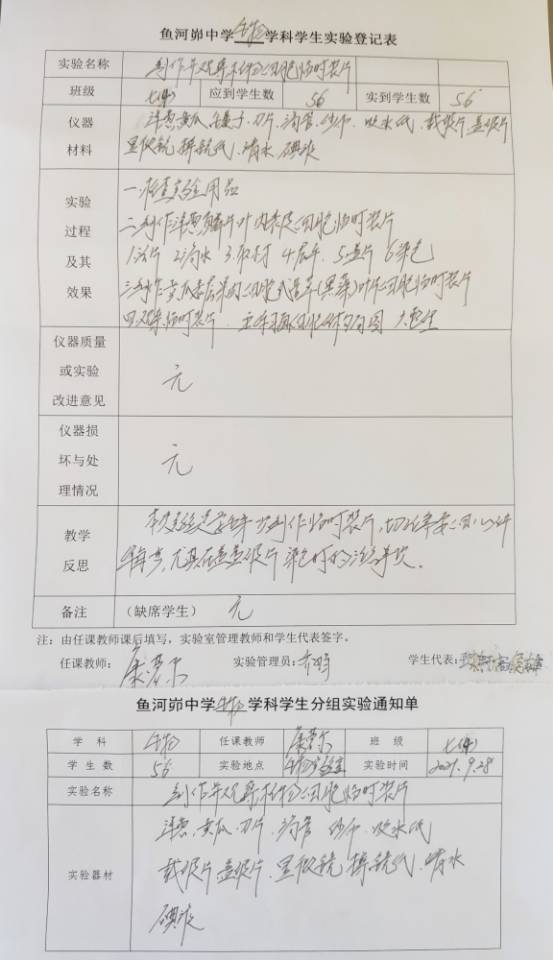 鱼河峁中学生物学科学生实验登记表
实验名称 制作并观察植物细胞临时装片
班级 七(4) 应到学生数 56 实到学生数 56
仪器 洋葱 黄瓜 镊子 刀片 滴管 纱布 吸水纸 载玻片 盖玻片
材料 显微镜 擦镜纸 清水 碘液
实验
过程
及其
效果
一.检查实验用品
二.制作洋葱鳞片叶内表皮细胞临时装片
1. 2.滴水 3. 4.展平 5.盖片 6染色
三.制作黄瓜表层果肉细胞或 (黑藻)叶片细胞临时装片
四.观察临时装片
仪器质量
或实验
改进意见
无
仪器损
坏与处
理情况
无
教学
反思
制作临时装片,
尤其在盖盖玻片 染色时的
备注 (缺席学生) 无
注：由任课教师课后填写，实验室管理教师和学生代表签字。
任课教师： 实验管理员： 学生代表：
鱼河峁中学生物学科学生分组实验通知单
学 科 生物 任课教师 班 级 七(4)
学 生 数 56 实验地点 生物实验室 实验时间 2021.9.28
实验名称 制作并观察植物细胞临时装片
实验器材
洋葱 黄瓜 刀片 滴管 纱布 吸水纸
载玻片 盖玻片 显微镜 擦镜纸 清水
碘液